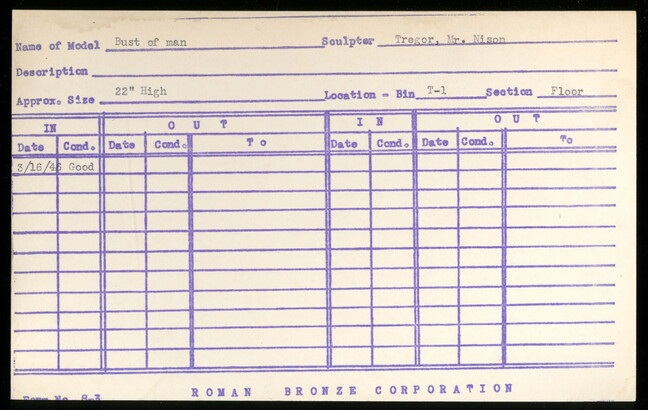 Name of Model Bust of man Sculptor Tregor, Mr. Nison
Description
Approx. Size 22" High Location - Bin T-1 Section Floor
IN OUT IN OUT
Date Cond. Date Cond. To Date Cond. Date Cond. To
3/16/46 Good
Form No. 8-3 ROMAN BRONZE CORPORATION